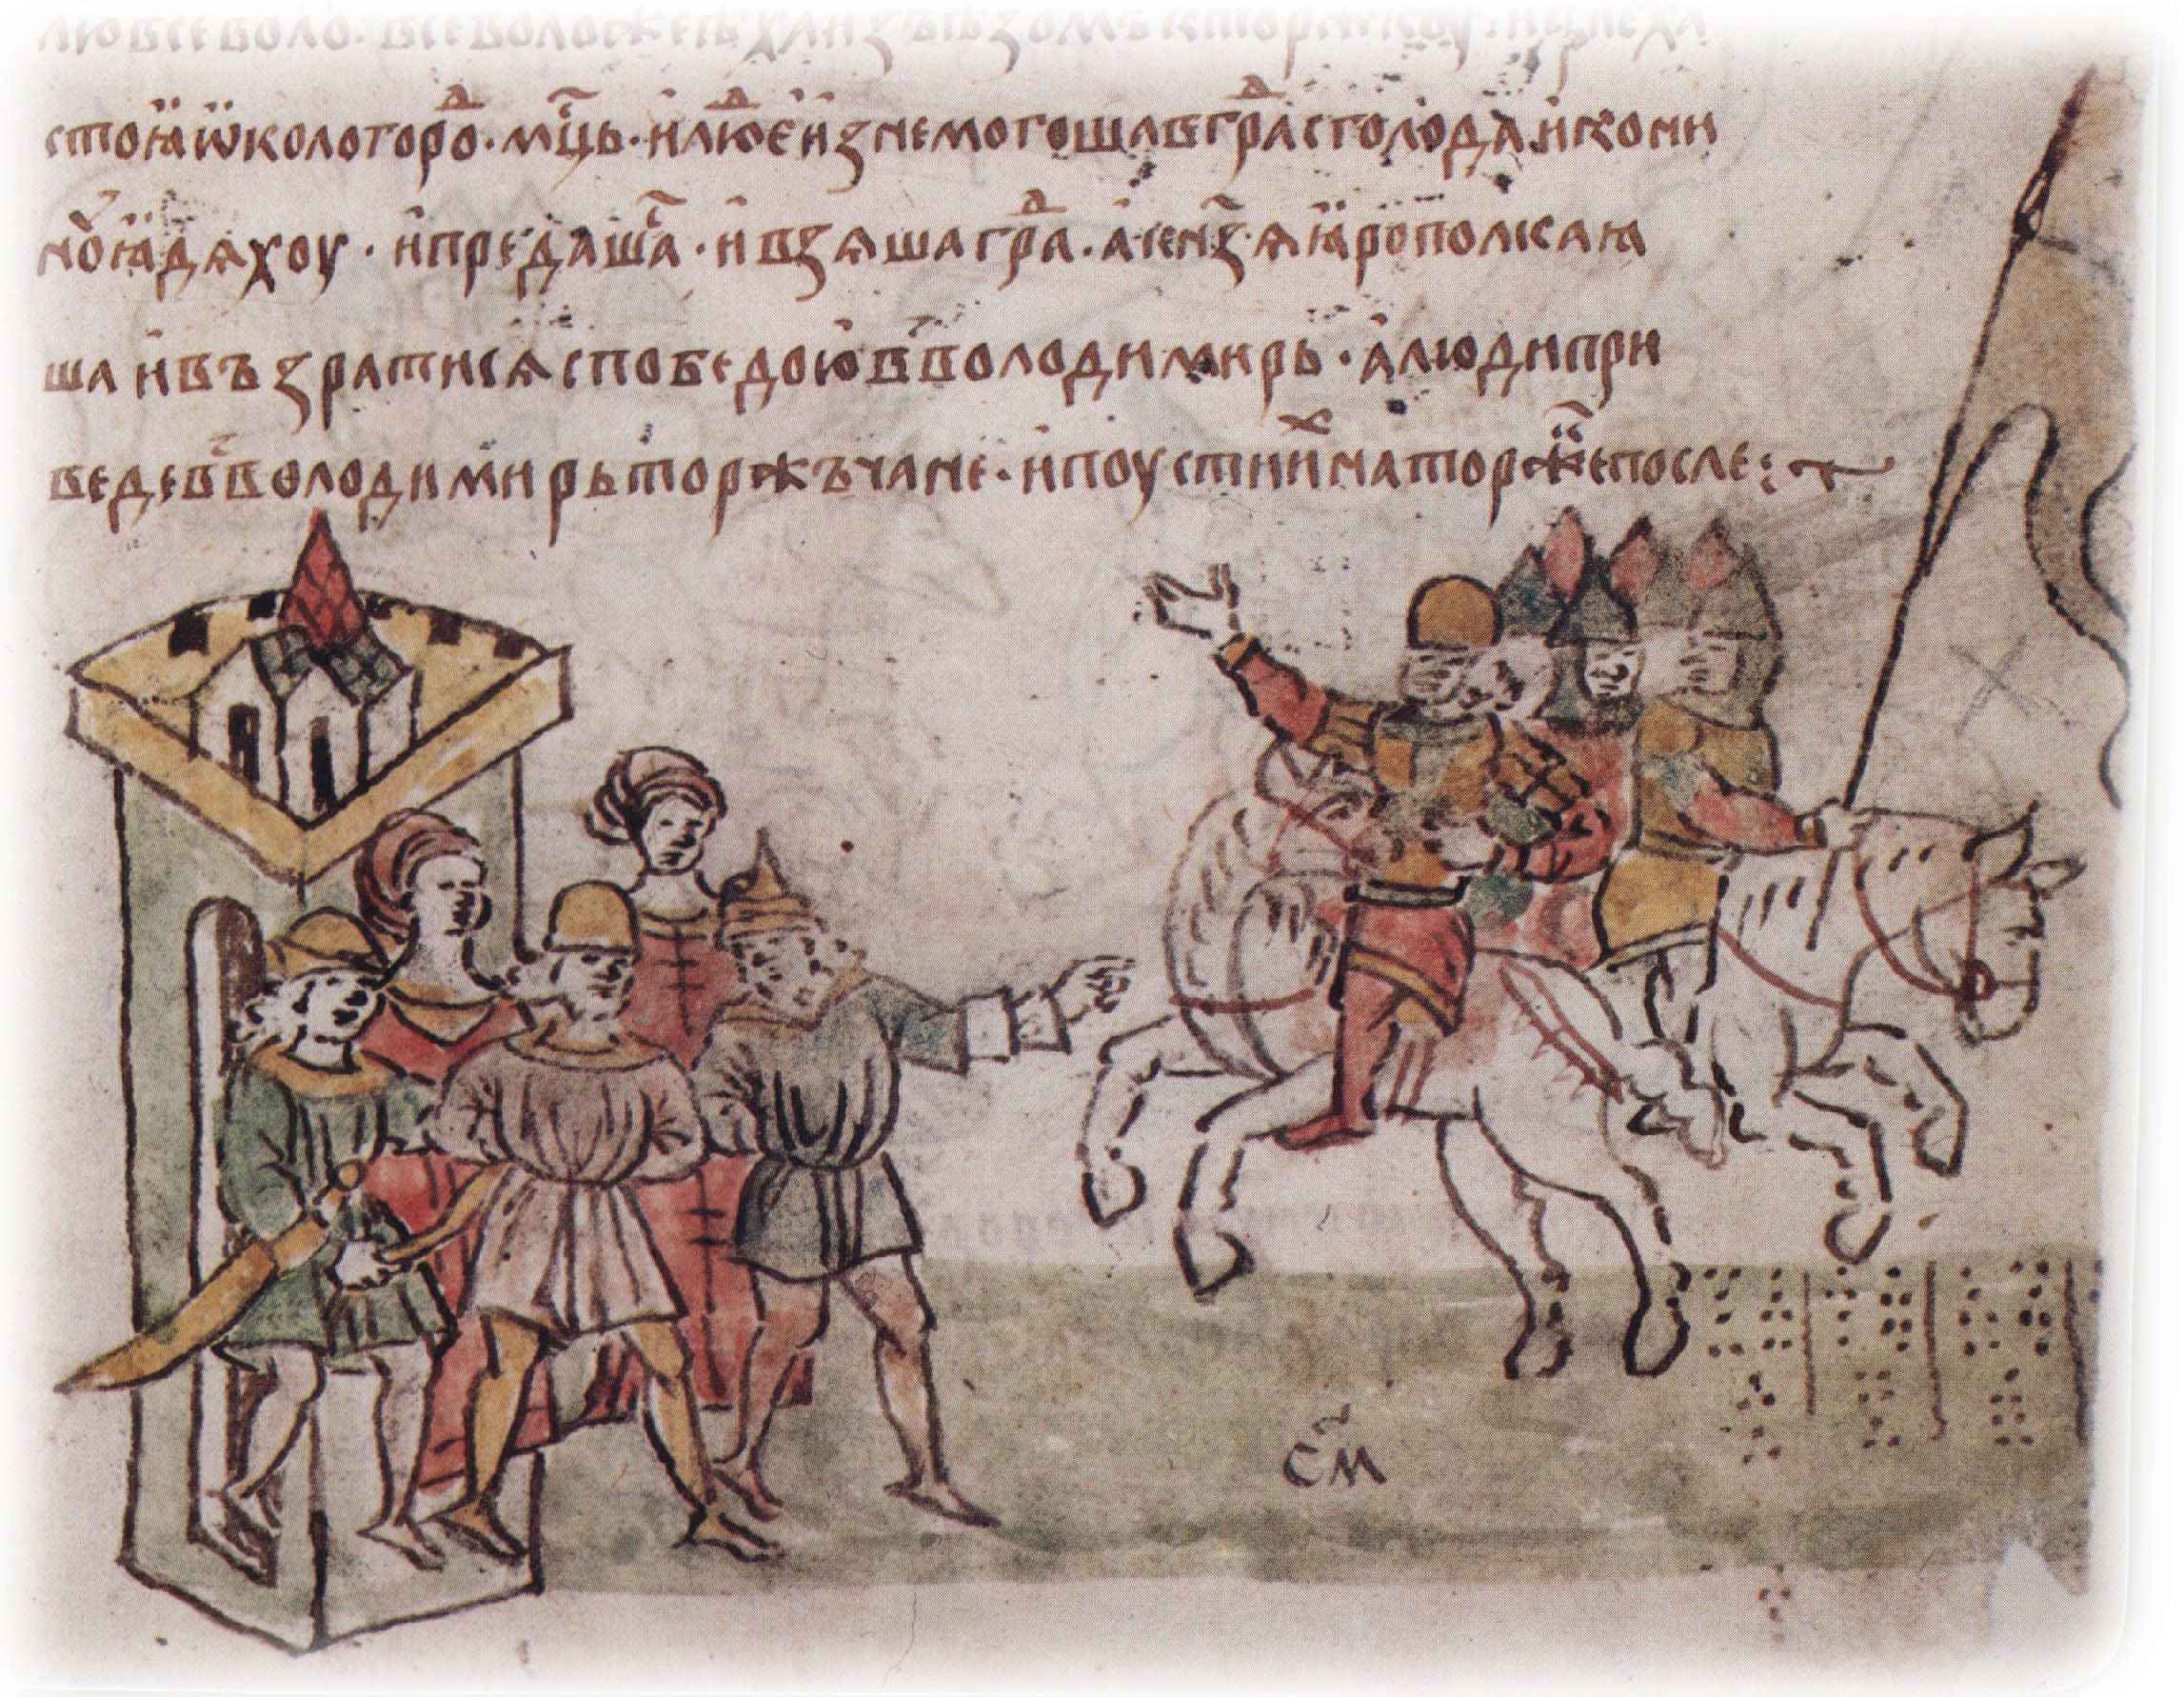 стоꙗ ѡколо торⷣо · мц҃ь · и люⷣе изнемогоша в граⷣ с голода · и кони
ноꙗдѧхоу · и предаша҃ · и взѧша граⷣ · а кнз҃ѧ ꙗрополка ꙗ
ша и възратисѧ с победою в володимирь · а люди при
веде в володимирь торжъчане · и поусти иⷯ на торже҃ после :~
см҃